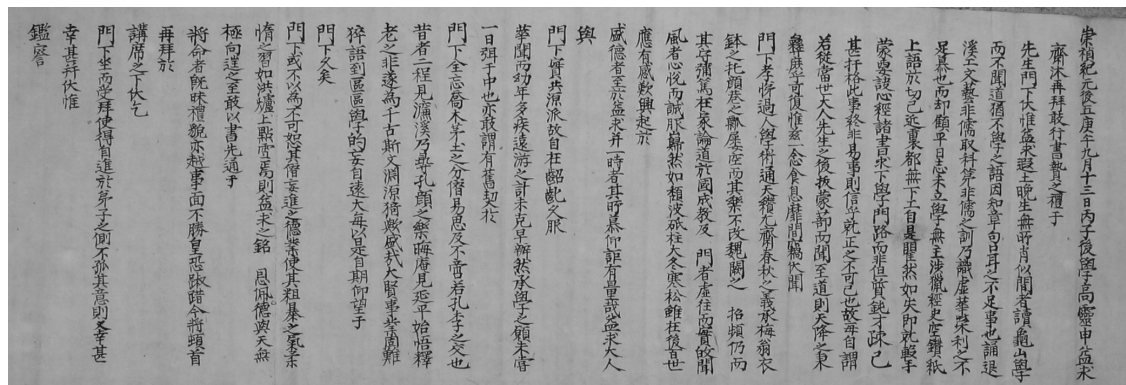 崇禎紀元後五庚午九月十三日丙子後學高靈申益求
齋沐再拜敢行書贄之禮于
先生門下伏惟益求遐土晚生無所肖似聞者讀龜山學
而不聞道猶不學之語因知章句口耳之不足事也誦退
溪工文藝非儒取科第非儒之訓乃識虛華榮利之不
足慕也而却顧平日志未立學無主涉獵經史空鑽紙
上語於切己近裏都無下上自是瞿然如失卽就擊
蒙要訣心經諸書求下學門路而非但質鈍才疎己
甚扞格此事終非易事則信乎就正之不可已也故每自謂
若從當世大人先生之後披蒙蔀而聞至道則天降之衷
彝庶乎可復惟玆一念食息靡間竊伏聞
門下孝悌過人學術通天纘尤齋春秋之義承梅翁衣
鉢之托顔巷之瓢屢空而其樂不改魏闕之 招頻仍而
其守彌篤枉衆論道於國成敎及 門者虛往而實歸聞
風者心悅而誠服歸然如頹波砥柱大冬寒松雖在後世
應有感歎興起於
盛德者至於益求幷一時者其所慕仰詎有量哉益求大人
與
門下實共源派故自在齠齔久服
華聞而幼年多疾遠游之計未克早辦然承學之願未嘗
一日弭于中也亦敢謂有舊契於
門下全忘喬木茅土之分僭易思及不啻若孔李之交也
昔者二程見濂溪乃尋孔顔之樂晦庵見延平始悟釋
老之非遂爲千古斯文淵源猗歟盛哉大賢事業固難
猝語到區區學的妄自遠大每以是自期仰望于
門下久矣
門下或不以爲不可恕其僭妄進之德業使其粗暴之氣柔
惰之習如洪爐上點雪焉則益求之銘 恩佩德與天無
極向逞之至敢以書先通于
將命者旣昧禮貌亦越事面不勝皇恐踧踖今將頓首
再拜於
講席之下伏乞
門下坐而受拜使得自進於弟子之側不孤其意則又幸甚
幸甚拜伏惟
鑑察